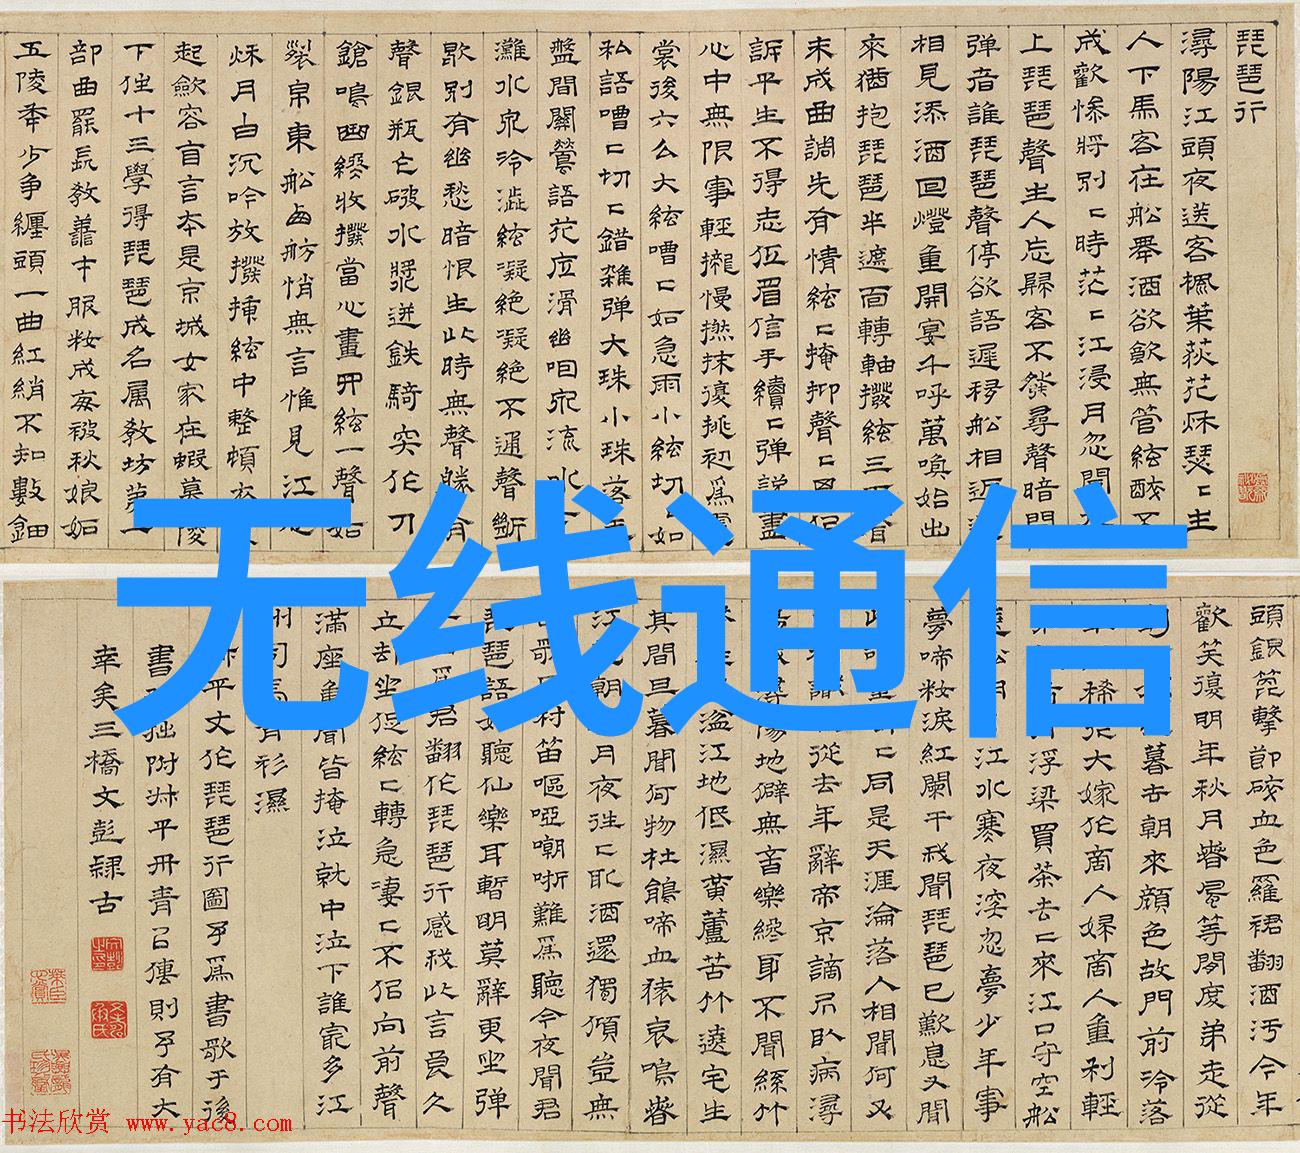 琵琶行
潯陽江頭夜送客楓葉荻花秋瑟〻主
人下馬客在船舉酒欲飲無管絃醉不
成歡慘將別〻時茫〻江浸月忽聞水
上琵琶聲主人忘歸客不發尋聲暗問
彈者誰琵琶聲停欲語遲移船相近邀
相見添酒回燈重開宴千呼萬喚始出
來猶抱琵琶半遮面轉軸撥絃三音
未成曲調先有情絃〻掩抑聲〻思似
訴平生不得志低眉信手續〻彈說盡
心中無限事輕攏慢撚抹復挑初為霓
裳後六么大絃嘈〻如急雨小絃切〻如
私語嘈〻切〻錯雜彈大珠小珠落玉
盤間關鶯語花底滑幽咽泉流水下
灘水泉冷澁絃凝絕凝絕不通聲漸
歇別有幽愁暗恨生此時無聲勝有
聲銀瓶乍破水漿迸鉄騎突作刀
鎗鳴曲終收撥當心畫四絃一聲如
裂帛東船西舫悄無言惟見江心
秋月白沉吟放撥插絃中整頓衣
起斂容自言本是京城女家在蝦蟇陵
下住十三學得琵琶成名属教坊第一
部曲罷長教善才服妝成每被秋娘妬
五陵年少爭纏頭一曲紅綃不知數鈿
无线通信
頭銀篦擊節碎血色羅裙翻酒汚今年
歡笑復明年秋月春風等閒度弟走從
暮去朝來顏色故門前冷落
稀老大嫁作商人婦商人重利輕
浮梁買茶去〻來江口守空船
江水寒夜深忽夢少年事
夢啼妝淚紅闌干我聞琵琶已歎息又聞
同是天涯淪落人相聞何又
從去年辭帝京謫居臥病潯
陽地僻無音樂終不聞絲竹
湓江地低濕黃蘆苦竹遶宅生
其間旦暮聞何物杜鵑啼血猿哀鳴春
江朝月夜往〻取酒還獨傾豈無
歌村笛嘔啞嘲哳難為聽今夜聞君
琵琶語如聽仙樂耳暫明莫辭更坐彈
為君翻作琵琶行感我此言良久
立却坐促絃〻轉急淒〻不似向前聲
滿座聞皆掩泣就中泣下誰寃多江
州司馬青衫濕
平丈作琵琶行圖予為書歌于後
書拙附平丹青以傳則予有大
幸矣三橋文彭隸古
书法欣赏 www.yac8.com